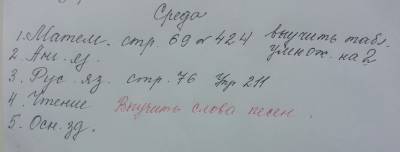 Среда
1. Матем. стр. 69 № 424 выучить табл.
умнож. на 2
2. Анг. яз.
3. Рус. яз. стр. 76 Упр 211
4. Чтение Выучить слова песен.
5. Осн. зд.